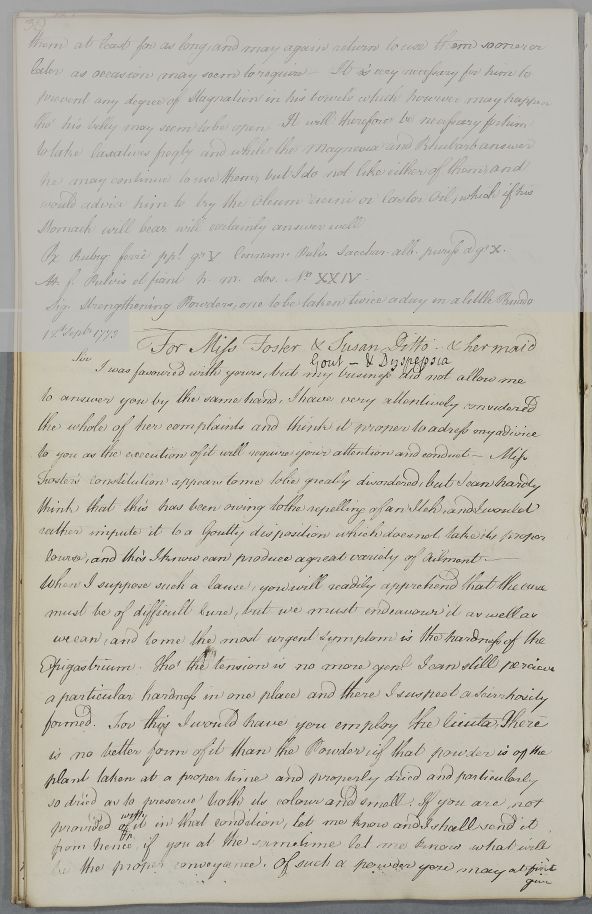 them at least for as long, and may again return to use them sooner or
later as occasion may seem to require — It is very necessary for him to
prevent any degree of Stagnation in his bowels which however may happen
tho' his belly may seem to be open. It will therefore be necessary for him
to take laxatives freely and while the Magnesia and Rhubarb answer
he may continue to use them, but I do not like either of them, and
would advise him to try the Oleum ricini or Castor Oil, which if his
Stomach will bear will certainly answer well
Rx Rubig. ferri ppt. gr V Cinnam. Pulv. Sacchar. alb. puriss a gr X.
M. f. Pulvis et fiant h. m. dos. No XXIV
Sig. Strengthening Powders, one to be taken twice a day in a little
12th Septr 1773
For Miss Foster & Susan Ditto - & her maid
Gout, — & Dyspepsia
Sir
I was favoured with yours, but my business did not allow me
to answer you by the same hand, I have very attentively considered
the whole of her complaints and think it proper to adress my advice
to you as the execution of it will require your attention and conduct — Miss
Foster's constitution appears to me to be greatly disordered, but I can hardly
think that this has been owing to the repelling of an Itch, and I would
rather impute it to a Goutty disposition which does not take its proper
course, and this I know can produce a great variety of Ailment —
When I suppose such a cause, you will readily apprehend that the case
must be of difficult Cure, but we must endeavour it as well as
we can, and to me the most urgent symptom is the hardness of the
Epigastrium. Tho' the tension is no more genl I can still perceive
a particular hardness in one place and there I suspect a Scirrhosity
formed. For this I would have you employ the Cicuta. There
is no better form of it than the Powder, if that powder is of the
plant taken at a proper time and properly dried and particularly
so dried as to preserve both its colour and smell. If you are not
provided with it in that condition, let me know and I shall send it
from hence, if you at the sametime let me know what will
be the proper conveyance. Of such a powder you may at first
give